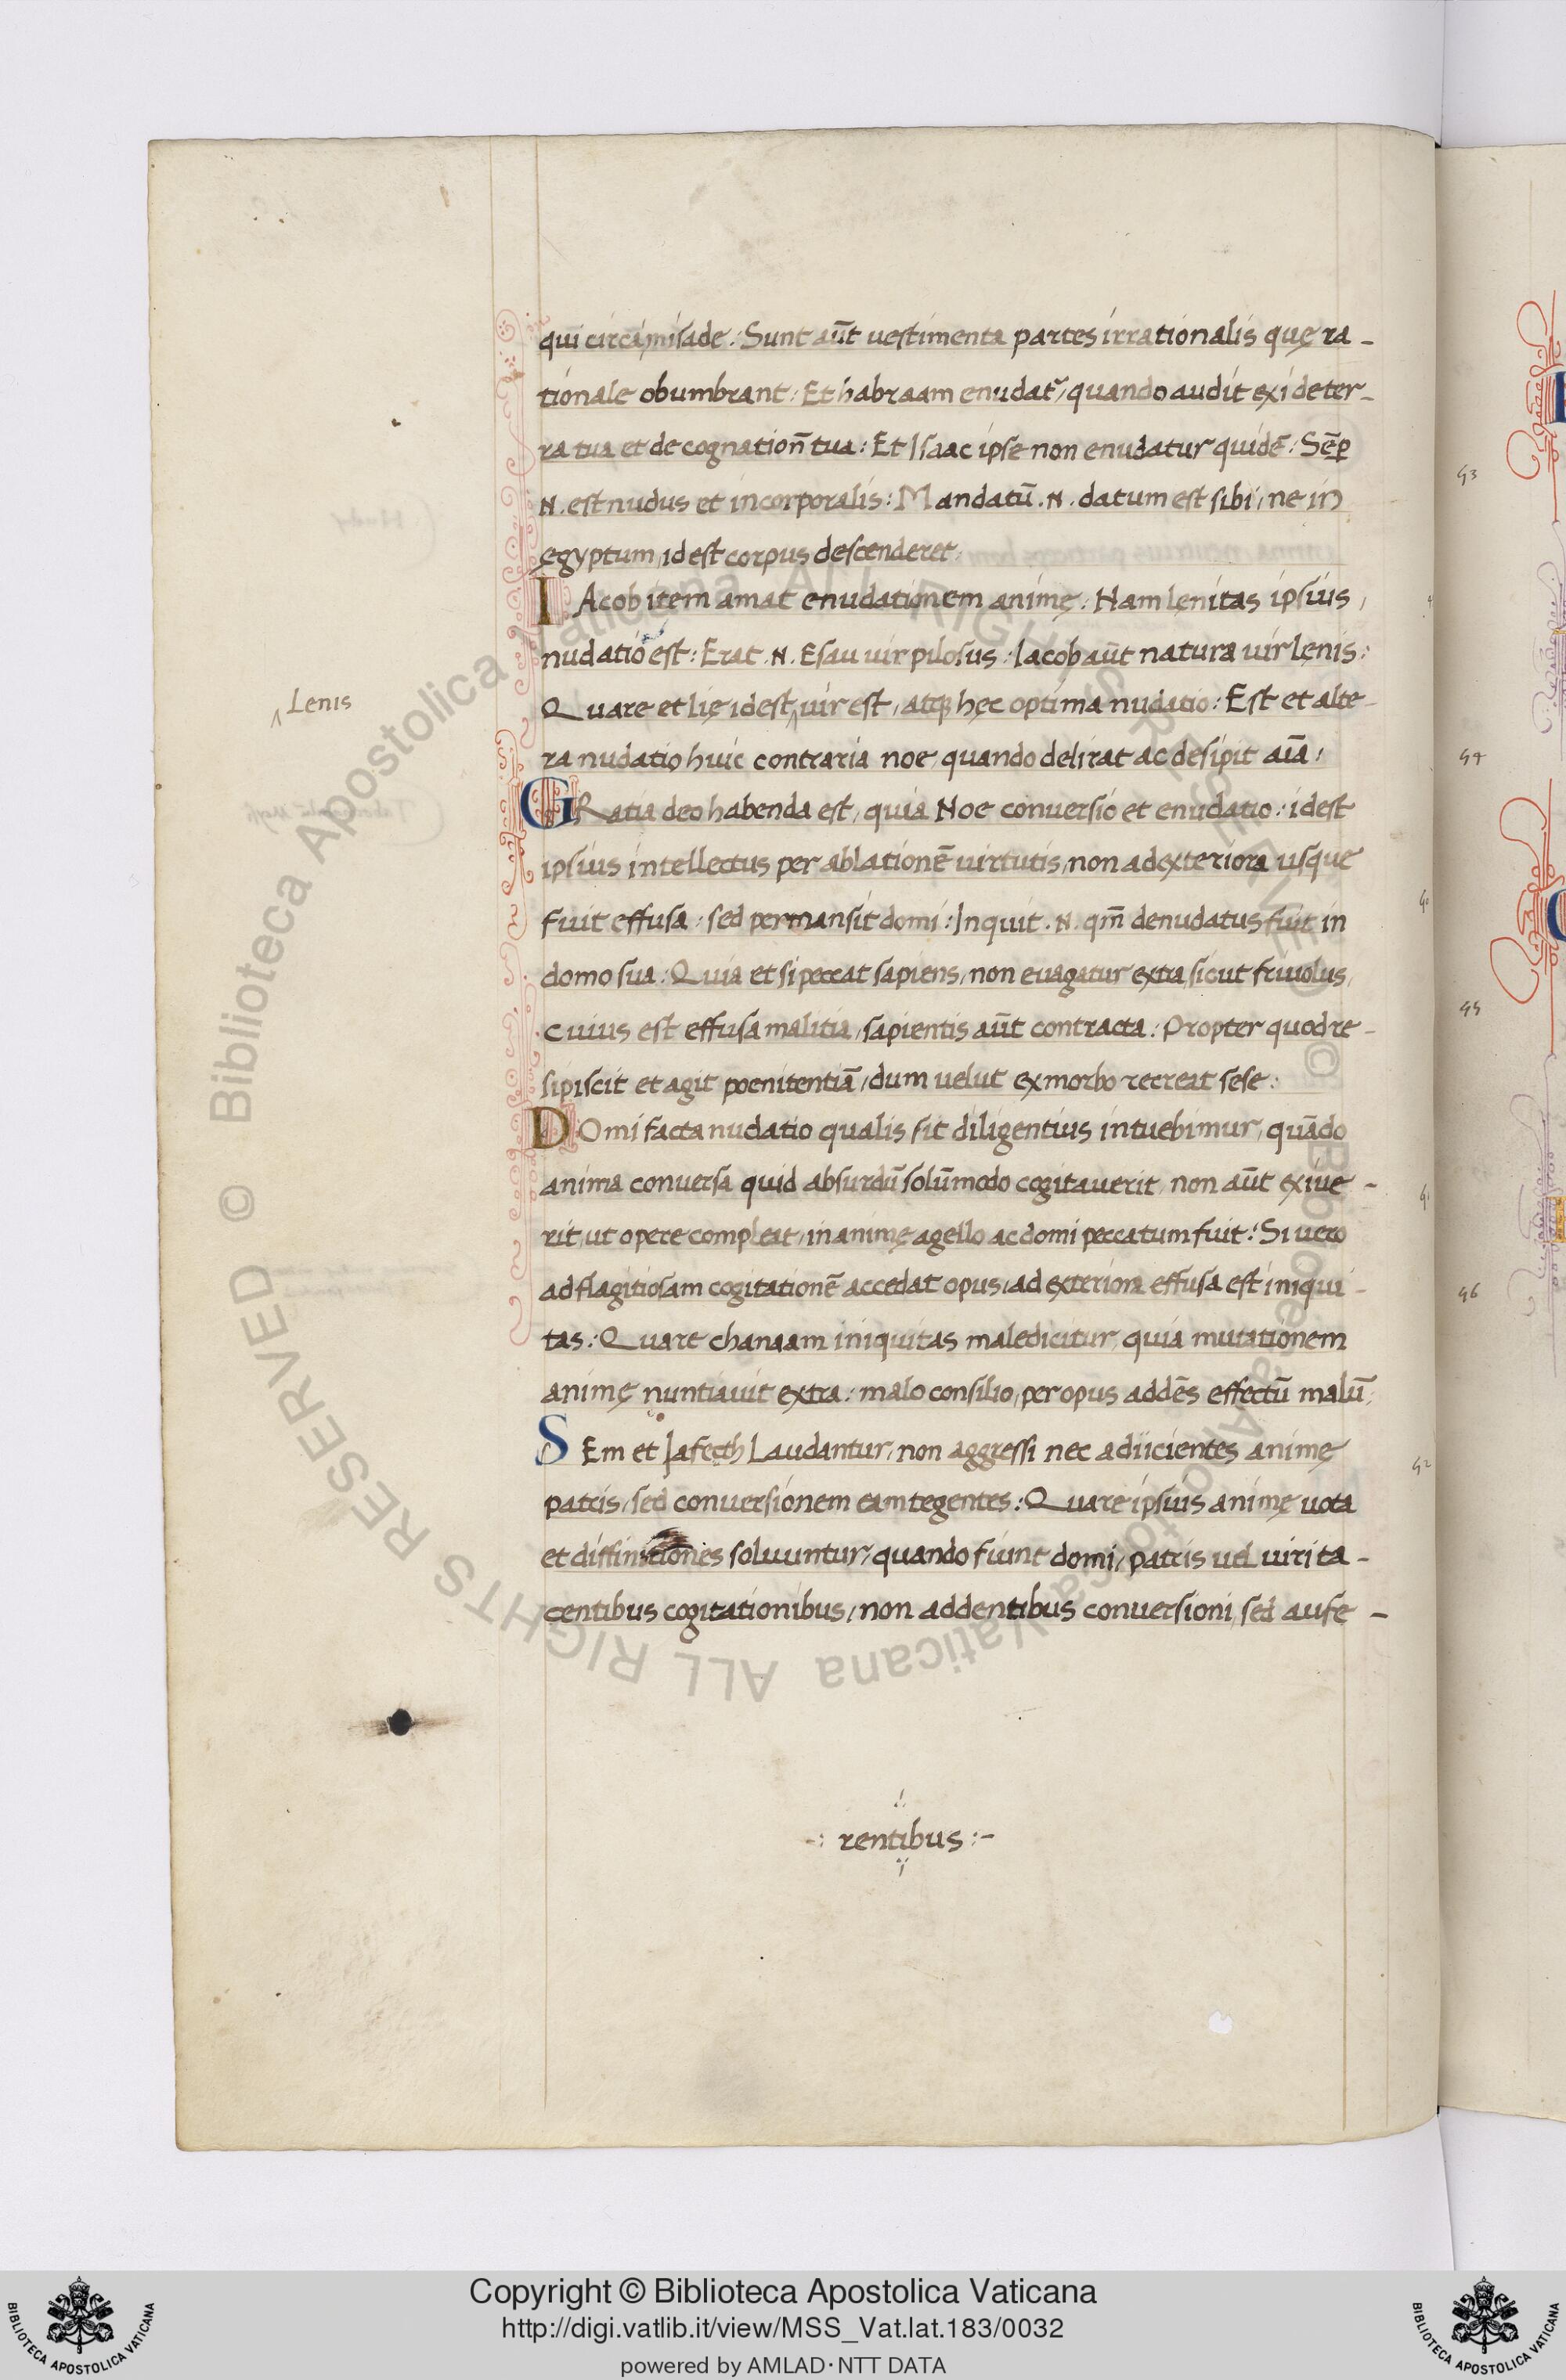 qui circa misade : Sunt aūt uestimenta partes irrationalis quę ra -
tionale obumbrant : Et habraam enudatr̃, quando audit exi de ter -
ra tua et de cognation̄ tua : Et Isaac ipse non enudatur quidē : Sēp
.N. est nudus et incorporalis : Mandatū .N. datum est sibi, ne in
ęgyptum, id est corpus descenderet :
IAcob item amat enudationem animę : Nam lęnitas ipsius,
nudatio est : Erat .N. Esau uir pilosus : Iacob aūt natura uir lęnis :
Quare et lię id est ‸ uir est, atq; hęc optima nudatio : Est et alte -
‸ Lenis
ra nudatio huic contraria noe, quando delirat ac desipit aīa :
GRatia deo habenda est, quia Noe conuersio et enudatio : id est
ipsius intellectus per ablationē uirtutis, non ad exteriora usque
fuit effusa : sed permansit domi : Inquit .N. qm̄ denudatus fuit in
domo sua : Quia et si peccat sapiens, non euagatur extra, sicut friuolus,
cuius est effusa malitia, sapientis aūt contracta : Propter quod re -
sipiscit et agit poenitentiā, dum uelut ex morbo recreat sese :
DOmi facta nudatio qualis sit diligentius intuebimur, quādo
anima conuersa quid absurdū solūmodo cogitauerit, non aūt exiue -
rit, ut opere compleat, in animę agello ac domi peccatum fuit : Si uero
ad flagitiosam cogitationē accedat opus, ad exteriora effusa est iniqui -
tas : Quare chanaam iniquitas maledicitur, quia mutationem
animę nuntiauit extra : malo consilio, per opus addēs effectū malū :
SEm et Iafecth Laudantur, non aggressi nec adiicientes animę
patris, sed conuersionem eam tegentes : Quare ipsius animę uota
et diffinitiones soluuntur, quando fiunt domi, patris uel uiri ta -
centibus cogitationibus, non addentibus conuersioni, sed aufe -
-: rentibus :-
43
44
45
46
42
Copyright © Biblioteca Apostolica Vaticana
http://digi.vatlib.it/view/MSS_Vat.lat.183/0032
powered by AMLAD·NTT DATA
BIBLIOTECA APOSTOLICA VATICANA
BIBLIOTECA APOSTOLICA VATICANA
© Biblioteca Apostolica Vaticana ALL RIGHTS RESERVED
© Biblioteca Apostolica Vaticana ALL RIGHTS RESERVED